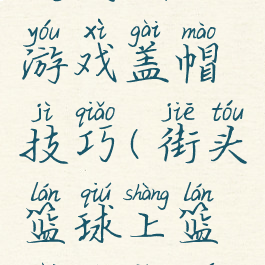 yóu xì gài mào
游戏盖帽
jì qiǎo jiē tóu
技巧(街头
lán qiú shàng lán
篮球上篮